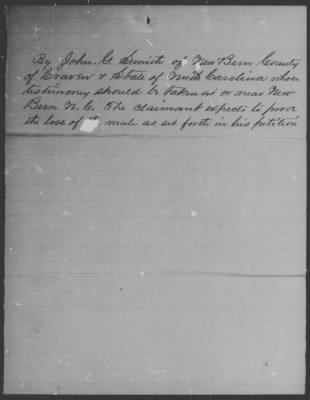 By John. C. Smith of New Bern County
of Craven & State of North Carolina whose
testimony should be taken at or near New
Bern N. C. The claimant expects to prove
the lose of mule as set forth in his petition